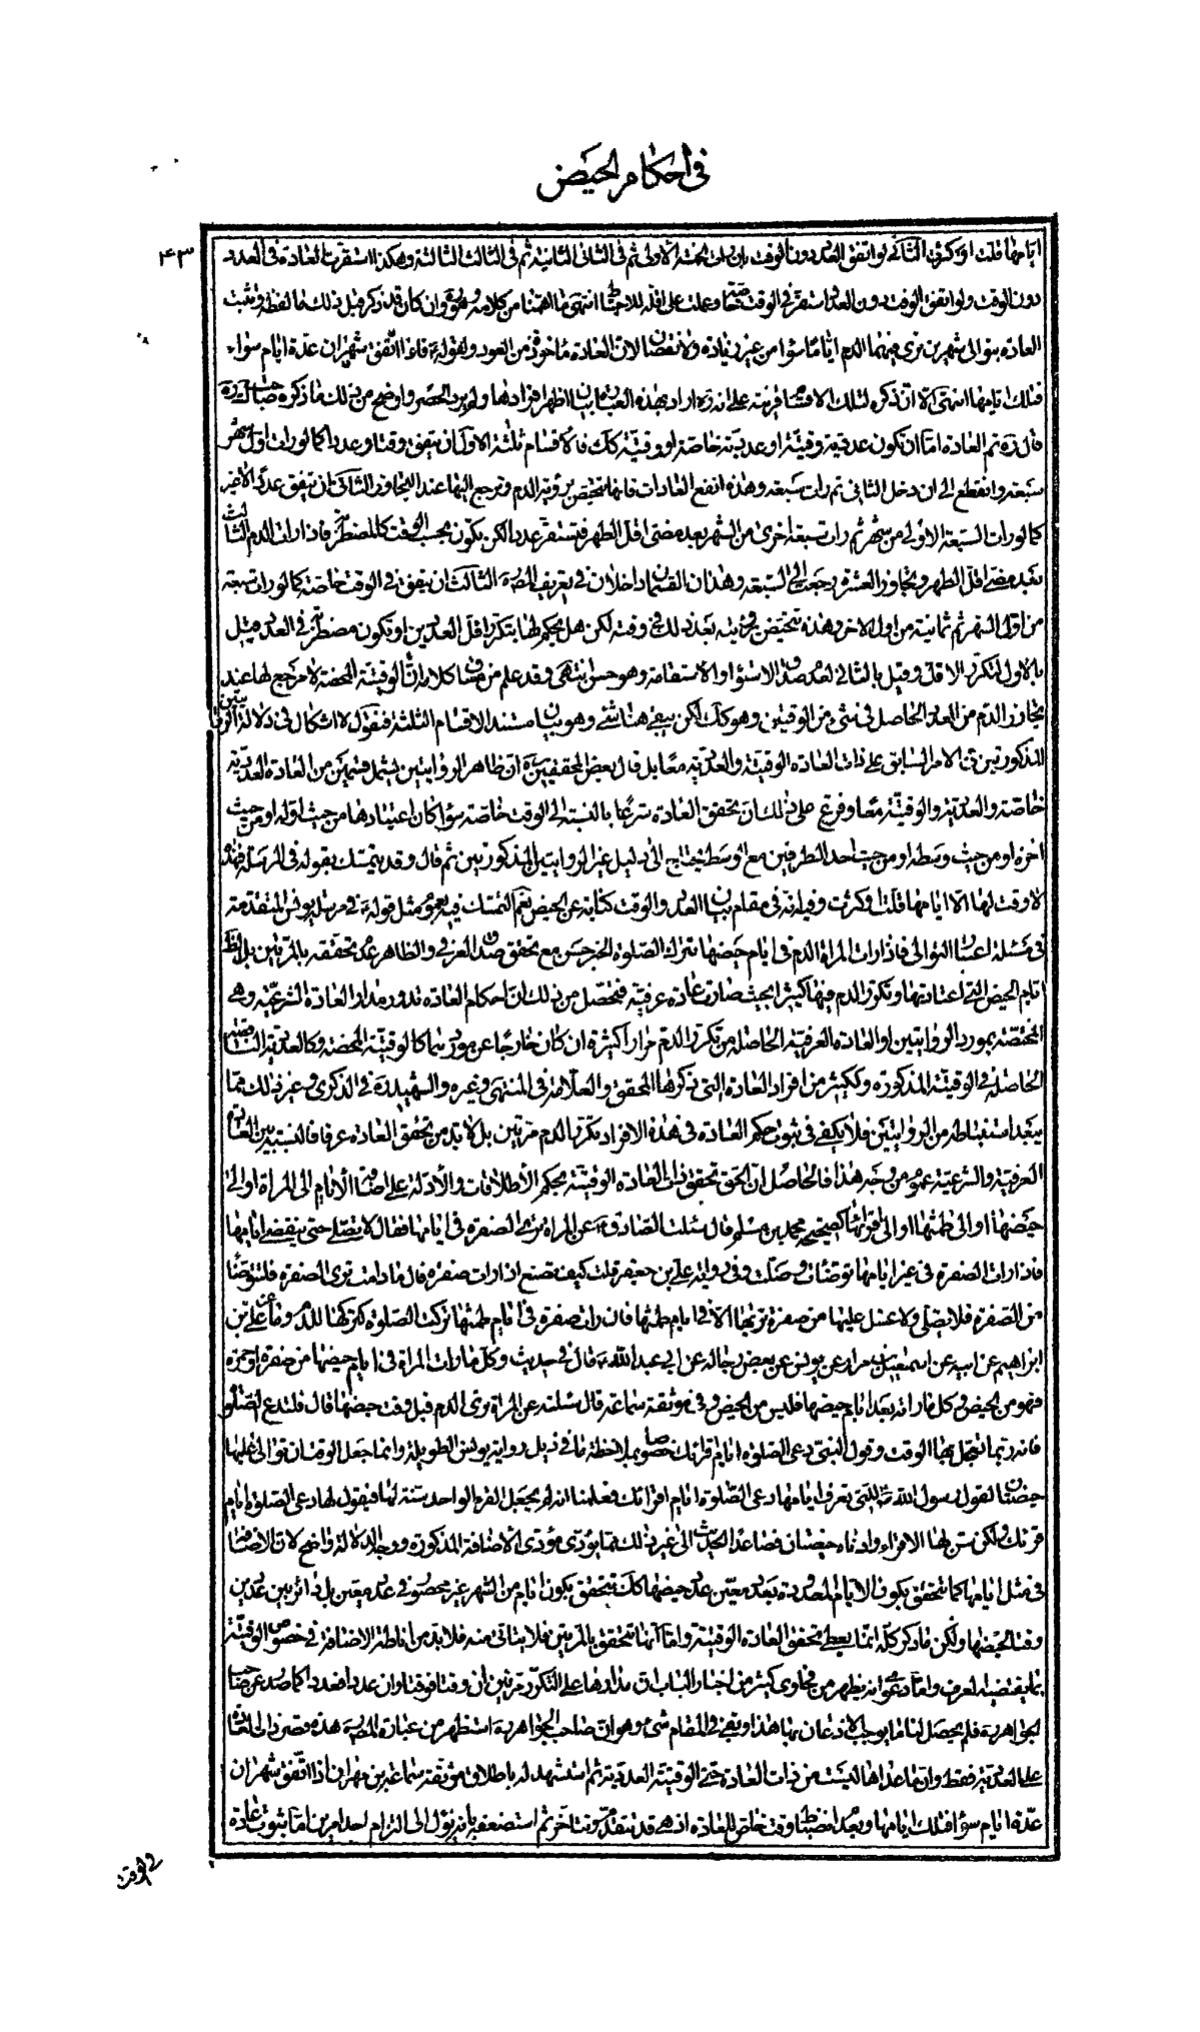 في احكام الحيض
۴۳
ايامها قلت او كثرت الثاني لو اتفق العدد دون الوقت بان رات الخمسة الاولى ثم في الثاني الثانية ثم في الثالث الثالثة وهكذا استقرت العادة في العدد
دون الوقت ولو اتفق الوقت دون العدد استقر في الوقت خاصة وعملت على اقله للاحتياط انتهى ما اهمنا من كلامه وهو وان كان قد ذكر قبل ذلك ما لفظه وتثبت
العادة بتوالي شهرين ترى فيهما الدم اياما سواء من غير زيادة ولا نقصان لان العادة ماخوذة من العود ولقوله فاذا اتفق شهران عدة ايام سواء
فتلك ايامها انتهى الا ان ذكره لتلك الاقسام قرينة على انه ره اراد بهذه العبارة بيان اظهر افرادها ولم يرد الحصر واوضح من ذلك ما ذكره صاحب
قال ره ثم العادة اما ان تكون عددية وقتية او عددية خاصة او وقتية كك فالاقسام ثلثة الاول ان يتفق وقتا وعددا كما لو رات اول شهر
سبعة وانقطع الى ان دخل الثاني ثم رات سبعة وهذه انفع العادات فانها تتحيض برؤية الدم وترجع اليها عند التجاوز الثاني ان يتفق عددا لا غير
كما لو رات السبعة الاولى من شهر ثم رات سبعة اخرى من الشهر بعد مضي اقل الطهر فيستقر عددا لكن يكون بحسب الوقت كالمضطربة فاذا رات الدم الثالث
بعد مضي اقل الطهر وتجاوز العشرة رجعت الى السبعة وهذان القسمان داخلان في تعريف المصنف الثالث ان يتفق في الوقت خاصة كما لو رات سبعة
من اول الشهر ثم ثمانية من اول الاخر وهذه تتحيض برؤيته بعد ذلك في وقته لكن هل يحكم لها بتكرر اقل العددين او تكون مضطربة في العدد قيل
بالاول لتكرر الاقل وقيل بالثاني لعدم صدق الاستواء والاستقامة وهو حسن انتهى وقد علم من مساق كلامه ان الوقتية المحضة لا مرجع لها عند
تجاوز الدم من العدد الحاصل في شيء من الوقتين وهو كك لكن بقي هنا شيء وهو بيان مستند الاقسام الثلثة فنقول لا اشكال في دلالة الروايتين
المذكورتين في الامر السابق على ذات العادة الوقتية والعددية معا بل قال بعض المحققين ره ان ظاهر الروايتين يشمل قسمين من العادة العددية
خاصة والعددية والوقتية معا وفرع على ذلك ان تحقق العادة شرعا بالنسبة الى الوقت خاصة سواء كان اعتيادها من حيث اوله او من حيث
اخره او من حيث وسطه او من حيث احد الطرفين مع الوسط يحتاج الى دليل غير الروايتين المذكورتين ثم قال وقد يتمسك بقوله في المرسلة
لا وقت لها الا ايامها قلت او كثرت وفيه انه في مقام بيان العدد والوقت كناية عن الحيض نعم التمسك فيه بعموم مثل قوله في مرسلة يونس المتقدمة
في مسئلة اعتبار التوالي فاذا رات المراة الدم في ايام حيضها تترك الصلوة الخبر حسن مع تحقق صدق العرفي والظاهر عدم تحققه بالمرتين بل الظاهر
ايام الحيض التي اعتادتها وتكرر الدم فيها كثيرا بحيث صارت عادة عرفية فتحصل من ذلك ان احكام العادة تدور مدار العادة الشرعية وهي
المختصة بمورد الروايتين او العادة العرفية الحاصلة من تكرر الدم مرارا كثيرة ان كان خارجا عن موردهما كالوقتية المحضة وكالعددية الناقصة
الحاصلة في الوقتية المذكورة وككثير من افراد العادة التي ذكرها المحقق والعلامة في المنتهى وغيره والشهيد ره في الذكرى وغير ذلك مما
يبعد استنباطه من الروايتين فلا يكفي في ثبوت حكم العادة في هذه الافراد تكرر الدم مرتين بل لا بد من تحقق العادة عرفا فالنسبة بين العادة
العرفية والشرعية عموم من وجه هذا فالحاصل ان الحق تحقق ذات العادة الوقتية بحكم الاطلاقات والادلة على اضافة الايام الى المراة او الى
حيضها او الى طمثها او الى اقرائها كصحيحة محمد بن مسلم قال سئلت الصادق ع عن المراة ترى الصفرة في ايامها فقال لا تصلي حتى ينقضي ايامها
فاذا رات الصفرة في غير ايامها توضات وصلت وفي رواية علي بن جعفر قلت كيف تصنع اذا رات صفرة قال ما دامت ترى الصفرة فلتتوضا
من الصفرة فلا تصلي ولا غسل عليها من صفرة تريها الا في ايام طمثها فان رات صفرة في ايام طمثها تركت الصلوة كتركها للدم وما عن علي بن
ابراهيم عن ابيه عن اسمعيل بن مرار عن يونس عن بعض رجاله عن ابي عبد الله ع قال في حديث وكل ما رات المراة في ايام حيضها من صفرة او حمرة
فهو من الحيض وكل ما راته بعد ايام حيضها فليس من الحيض وفي موثقة سماعة قال سئلته عن المراة ترى الدم قبل وقت حيضها قال فلتدع الصلوة
فانه ربما تعجل بها الوقت وقول النبي دعي الصلوة ايام اقرائك خصوصا بملاحظة ما في ذيل رواية يونس الطويلة وانما جعل الوقت ان توالى عليها
حيضتان لقول رسول الله ص للتي تعرف ايامها دعي الصلوة ايام اقرائك فعلمنا انه لم يجعل القرء الواحد سنة لها فيقول لها دعي الصلوة ايام
قرئك ولكن سن لها الاقراء وادناه حيضتان فصاعدا الحديث الى غير ذلك مما يؤدي مؤدى الاضافة المذكورة ووجه الدلالة واضح لان الاضافة
في مثل ايامها كما تتحقق بكون الايام المعدودة بعدد معين عدد حيضها كك تتحقق بكون ايام من الشهر غير محصور في عدد معين بل دائر بين عددين
وقتا لحيضها ولكن ما ذكر كله انما يعطي تحقق العادة الوقتية واما انها تتحقق بالمرتين فلا يتاتى منه فلا بد من اناطة الاضافة في خصوص الوقتية
بما يقتضيه العرف واما دعوى انه يظهر من فحاوي كثير من اخبار الباب ان مدارها على التكرر مرتين ان وقتا فوقتا وان عددا فعددا كما صدر عن صاحب
الجواهر ره فلم يحصل لنا ما يوجب الاذعان بها هذا وبقي في المقام شيء وهو ان صاحب الجواهر ره استظهر من عبارة المص ره هذه قصر ذات العادة
على العددية فقط وان ما عداها ليست من ذات العادة حتى الوقتية العددية ثم استشهد له باطلاق موثقة سماعة بن مهران اذا اتفق شهران
عدة ايام سواء فتلك ايامها وبعدم انضباط وقت خاص للعادة اذ هي قد تتقدم وتتاخر ثم استضعفه بانه يؤل الى التزام احد امرين اما ثبوت عادة